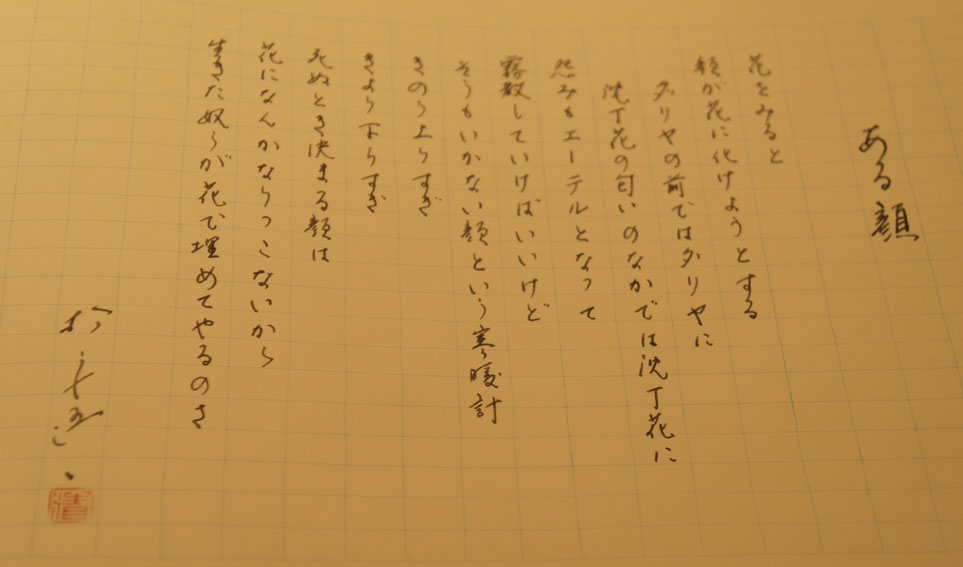 ある顔
花をみると
顔が花に化けようとする
ダリヤの前ではダリヤに
沈丁花の匂いのなかでは沈丁花に
怨みもエーテルとなって
霧散していけばいいけど
そうもいかない顔という寒暖計
きのう上りすぎ
きょう下りすぎ
死ぬとき決まる顔は
花になんかならっこないから
生きた奴らが花で埋めてやるのさ
清